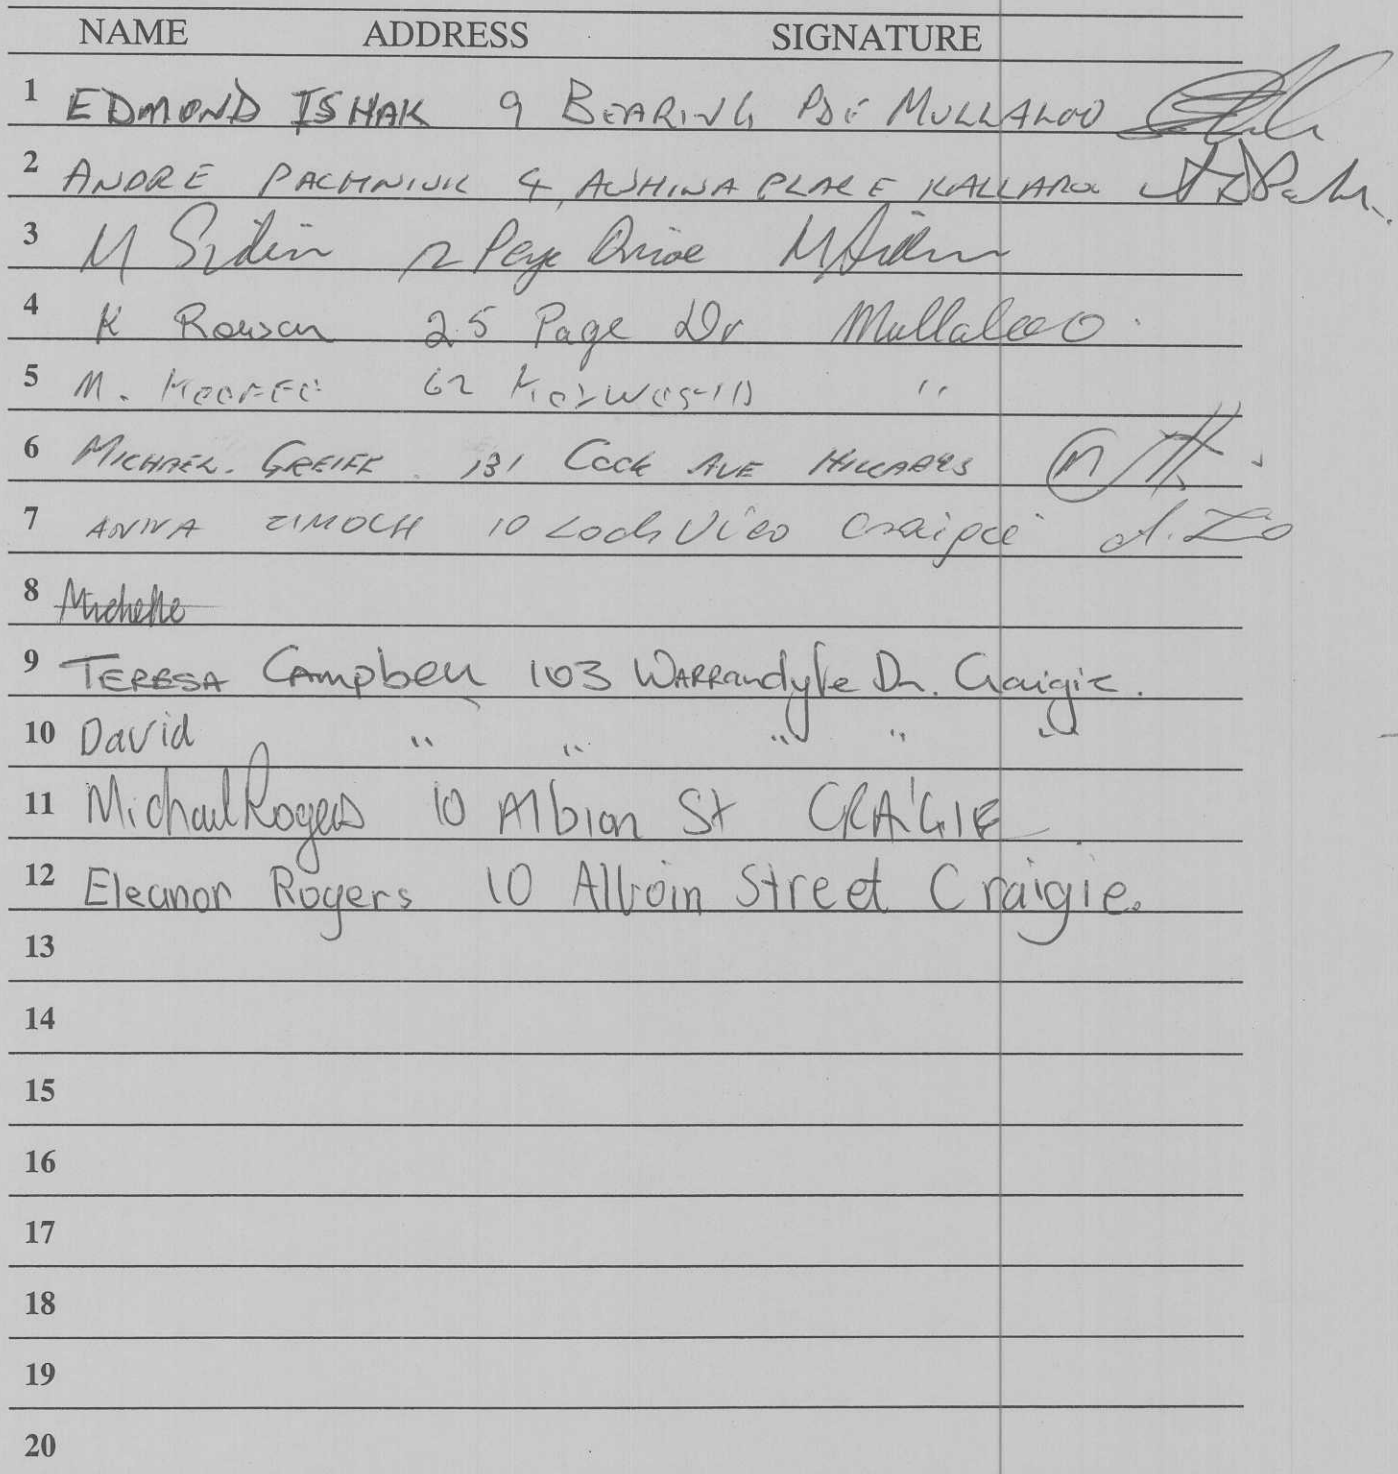 NAME ADDRESS SIGNATURE
1 EDMOND ISHAK 9 BEARING PDE MULLALOO
2 ANDRE PACHNIUK 4, PLACE KALLAROO
3 M Drive M
4 K Rowson 25 Page Dr Mullaloo
5 M. 62 "
6 MICHAEL. GREIFF 131 COOK AVE HILLARYS
7 ANNA ZIMOCH 10 Loch Craigie A. Zo
8 Michelle
9 TERESA Campbell 103 WARRandyte Dr. Craigie.
10 David " " " " "
11 Michael Rogers 10 Albion St CRAIGIE
12 Eleanor Rogers 10 Alboin Street Craigie.
13
14
15
16
17
18
19
20